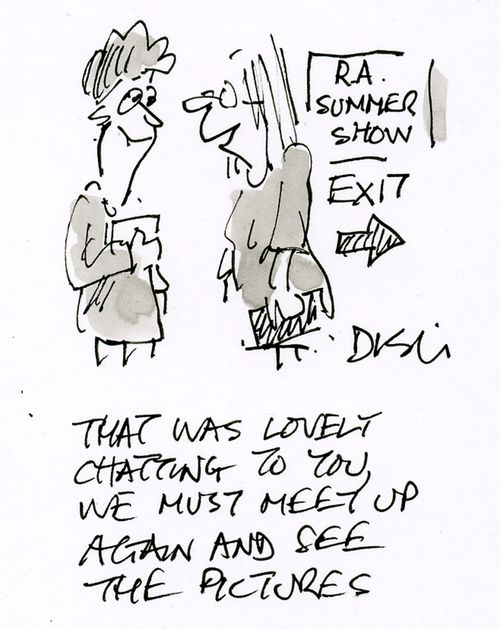 R.A.
SUMMER
SHOW
EXIT
THAT WAS LOVELY
CHATTING TO YOU,
WE MUST MEET UP
AGAIN AND SEE
THE PICTURES